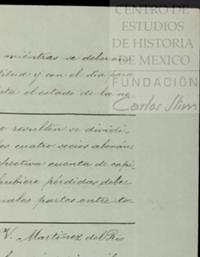 CENTRO DE
ESTUDIOS
DE HISTORIA
DE MEXICO
FUNDACIÓN
Carlos Slim
miéntras se determi
titud y con el dia para
el estado de la ne
resulten se dividi
los cuatro socios abonán
pectiva cuenta de capi
hubiere pérdidas debe
uales partes entre to
V. Martinez del Rio